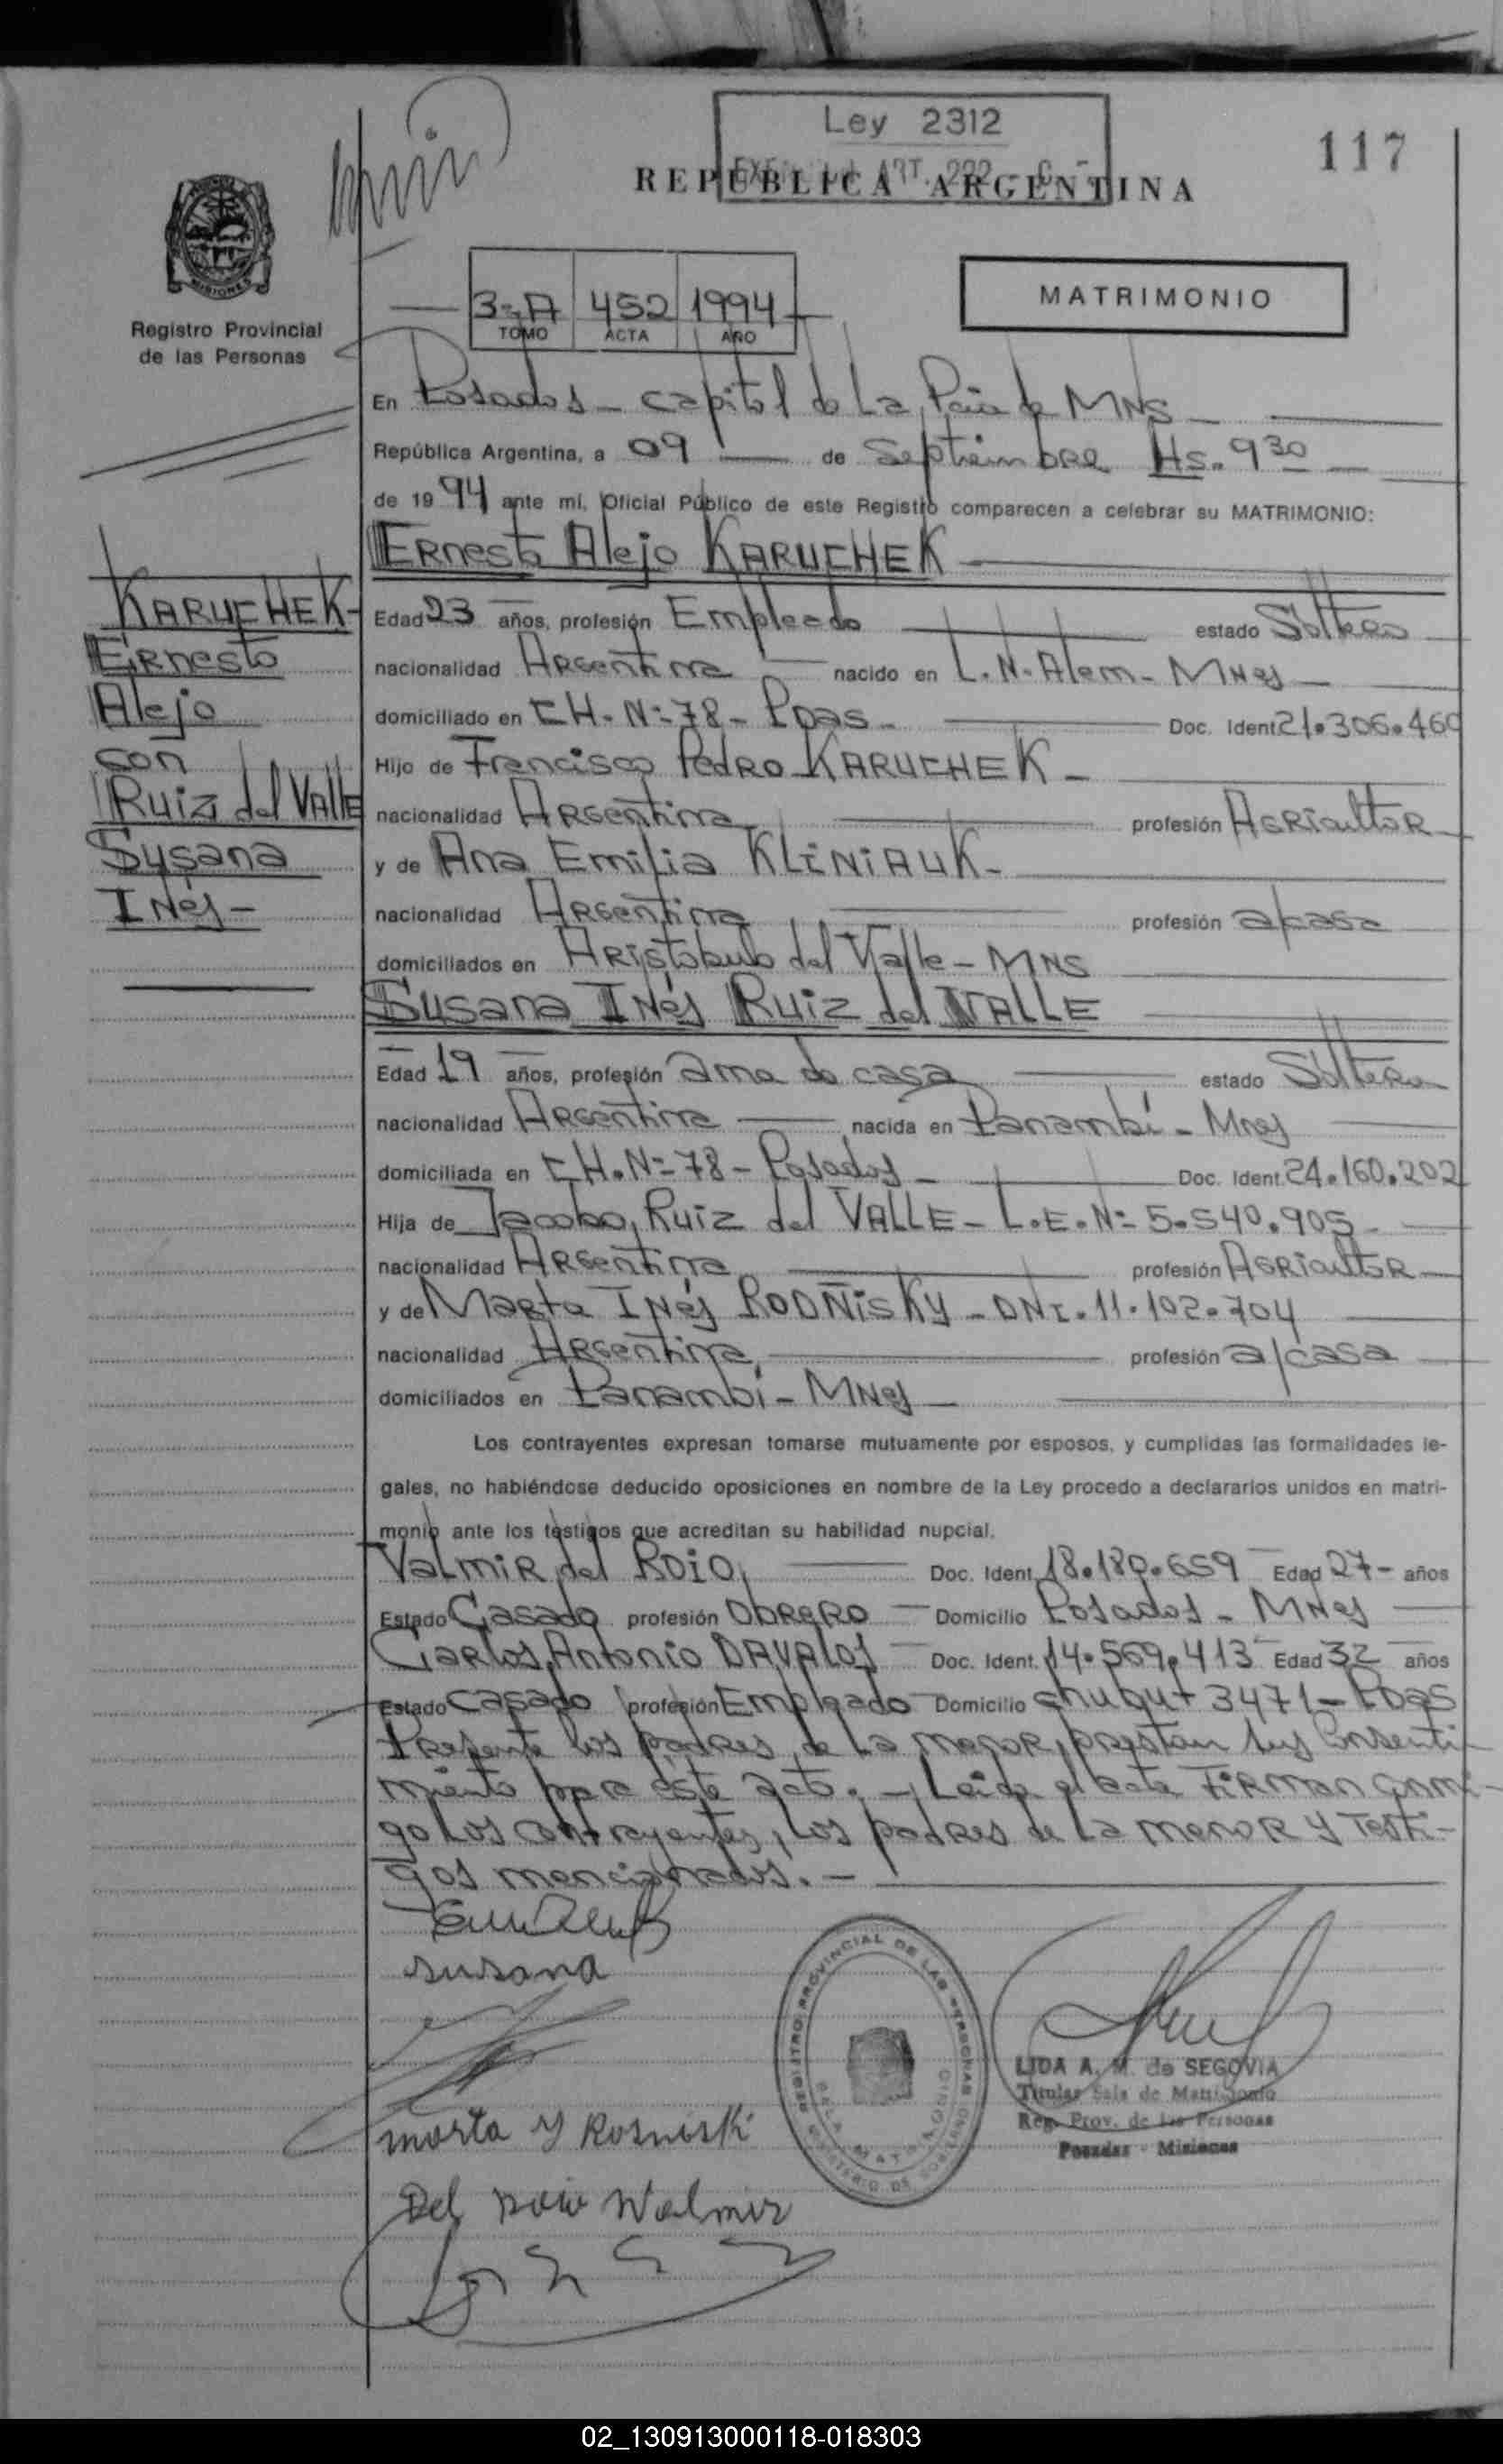 Ley 2312
117
REPUBLICA ARGENTINA
ART.
MISIONES
Registro Provincial
de las Personas
3-A 452 1994
TOMO ACTA AÑO
MATRIMONIO
En Posadas - capital de La Pcia de MNS
República Argentina, a 09 de Septiembre Hs. 9 30
de 19 94 ante mí, Oficial Público de este Registro comparecen a celebrar su MATRIMONIO:
Ernesto Alejo KARUCHEK
KARUCHEK-
Ernesto
Alejo
con
Ruiz del VAlle
Susana
INés-
Edad 23 años, profesión Empleado estado Soltero
nacionalidad Argentina nacido en L.N. Alem - MNes
domiciliado en CH. Nº 78 - Pdas - Doc. Ident. 21.306.460
Hijo de Francisco Pedro KARUCHEK -
nacionalidad Argentina profesión Agricultor
y de Ana Emilia KLINIAUK -
nacionalidad Argentina profesión a/casa
domiciliados en Aristobulo del Valle - MNS
Susana INés Ruiz del VALLE
Edad 19 años, profesión ama de casa estado Soltera
nacionalidad Argentina nacida en Panambí - MNes
domiciliada en CH. Nº 78 - Posadas - Doc. Ident. 24.160.202
Hija de Jacobo Ruiz del VALLE - L.E. Nº 5.540.905 -
nacionalidad Argentina profesión Agricultor
y de Marta INés RODÑisKy - DNI. 11.102.704
nacionalidad Argentina profesión a/casa
domiciliados en Panambí - MNes
Los contrayentes expresan tomarse mutuamente por esposos, y cumplidas las formalidades le-
gales, no habiéndose deducido oposiciones en nombre de la Ley procedo a declararlos unidos en matri-
monio ante los testigos que acreditan su habilidad nupcial.
Valmir del ROIO Doc. Ident. 18.180.659 Edad 27- años
Estado Casado profesión Obrero Domicilio Posadas - MNes
Carlos Antonio DAVALOS Doc. Ident. 14.569.413 Edad 32 años
Estado casado profesión Empleado Domicilio chubut 3471 - Pdas
Presente los padres de La menor, prestan sus Consenti-
miento para éste acto. - Leida el acta Firman conmi-
go Los contrayentes, Los padres de La menor y Testi-
gos mencionados. -
susana
REGISTRO PROVINCIAL DE LAS PERSONAS
MINISTERIO DE GOBIERNO
LIDA A. M. de SEGOVIA
Titular Sala de Matrimonio
Reg. Prov. de las Personas
Posadas - Misiones
marta y Rosniski
Del roio Walmir
02_130913000118-018303